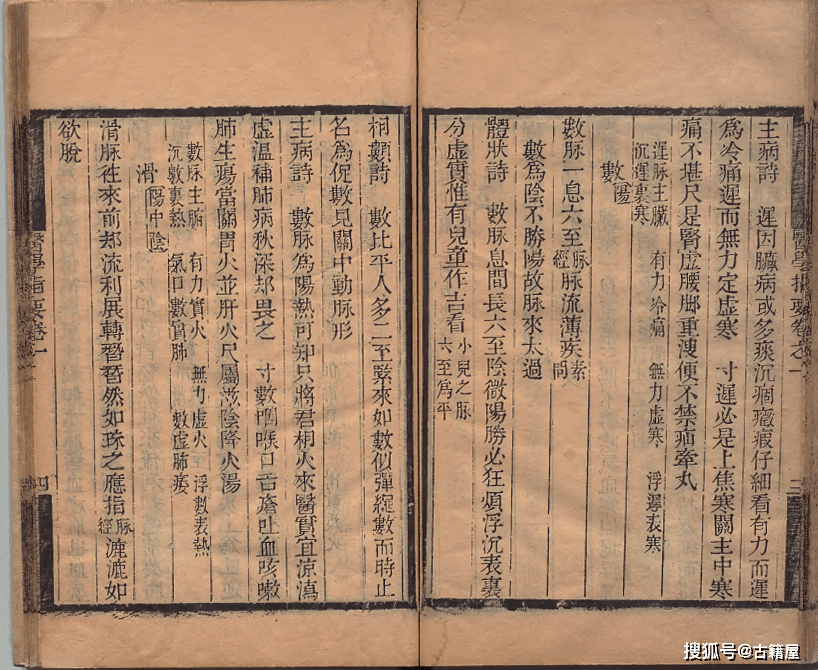 主病詩　遲因臟病或多痰沉痼癥瘕仔細看有力而遲
為冷痛遲而無力定虛寒　寸遲必是上焦寒關主中寒
痛不堪尺是腎虛腰脚重溲便不禁疝牽丸
遲脉主臟　有力冷痛　無力虛寒　浮遲表寒
沉遲裏寒
數陽
數脉一息六至脉經脉流薄疾素問
數為陰不勝陽故脉來太過
體狀詩　數脉息間長六至陰微陽勝必狂煩浮沉表裏
分虛實惟有兒童作吉看小兒之脉六至為平
相類詩　數比平人多二至緊來如數似彈繩數而時止
名為促數見關中動脉形
主病詩　數脉為陽熱可知只將君相火來醫實宜涼瀉
虛温補肺病秋深却畏之　寸數咽喉口舌瘡吐血咳嗽
肺生瘍當關胃火並肝火尺屬滋陰降火湯
數脉主腑　有力實火　無力虛火　浮數表熱
沉數裏熱　氣口數實肺　數虛肺痿
滑陽中陰
滑脉往來前却流利展轉替替然如珠之應指脉經漉漉如
欲脫
醫學指要卷之一
三
醫學指要卷一
四
搜狐号@古籍屋